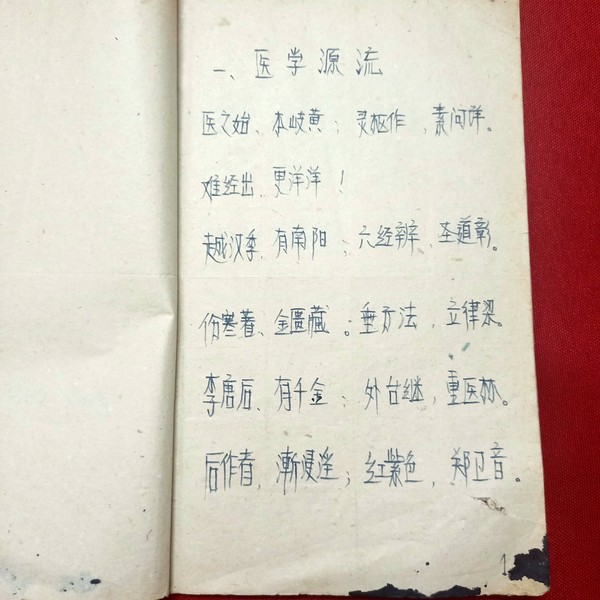 一、医学源流
医之始、本岐黄；灵枢作，素问详。
难经出、更洋洋！
越汉季，有南阳；六经辨，圣道彰。
伤寒着、金匮藏。垂方法，立律梁。
李唐后、有千金；外台继，重医林。
后作者，渐浸淫；红紫色，郑卫音。
1